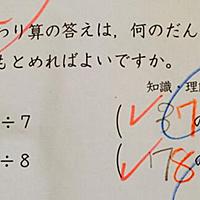 わり算の答えは、何のだん
もとめればよいですか。
知識・理
÷7
( 7の
÷8
( 8の